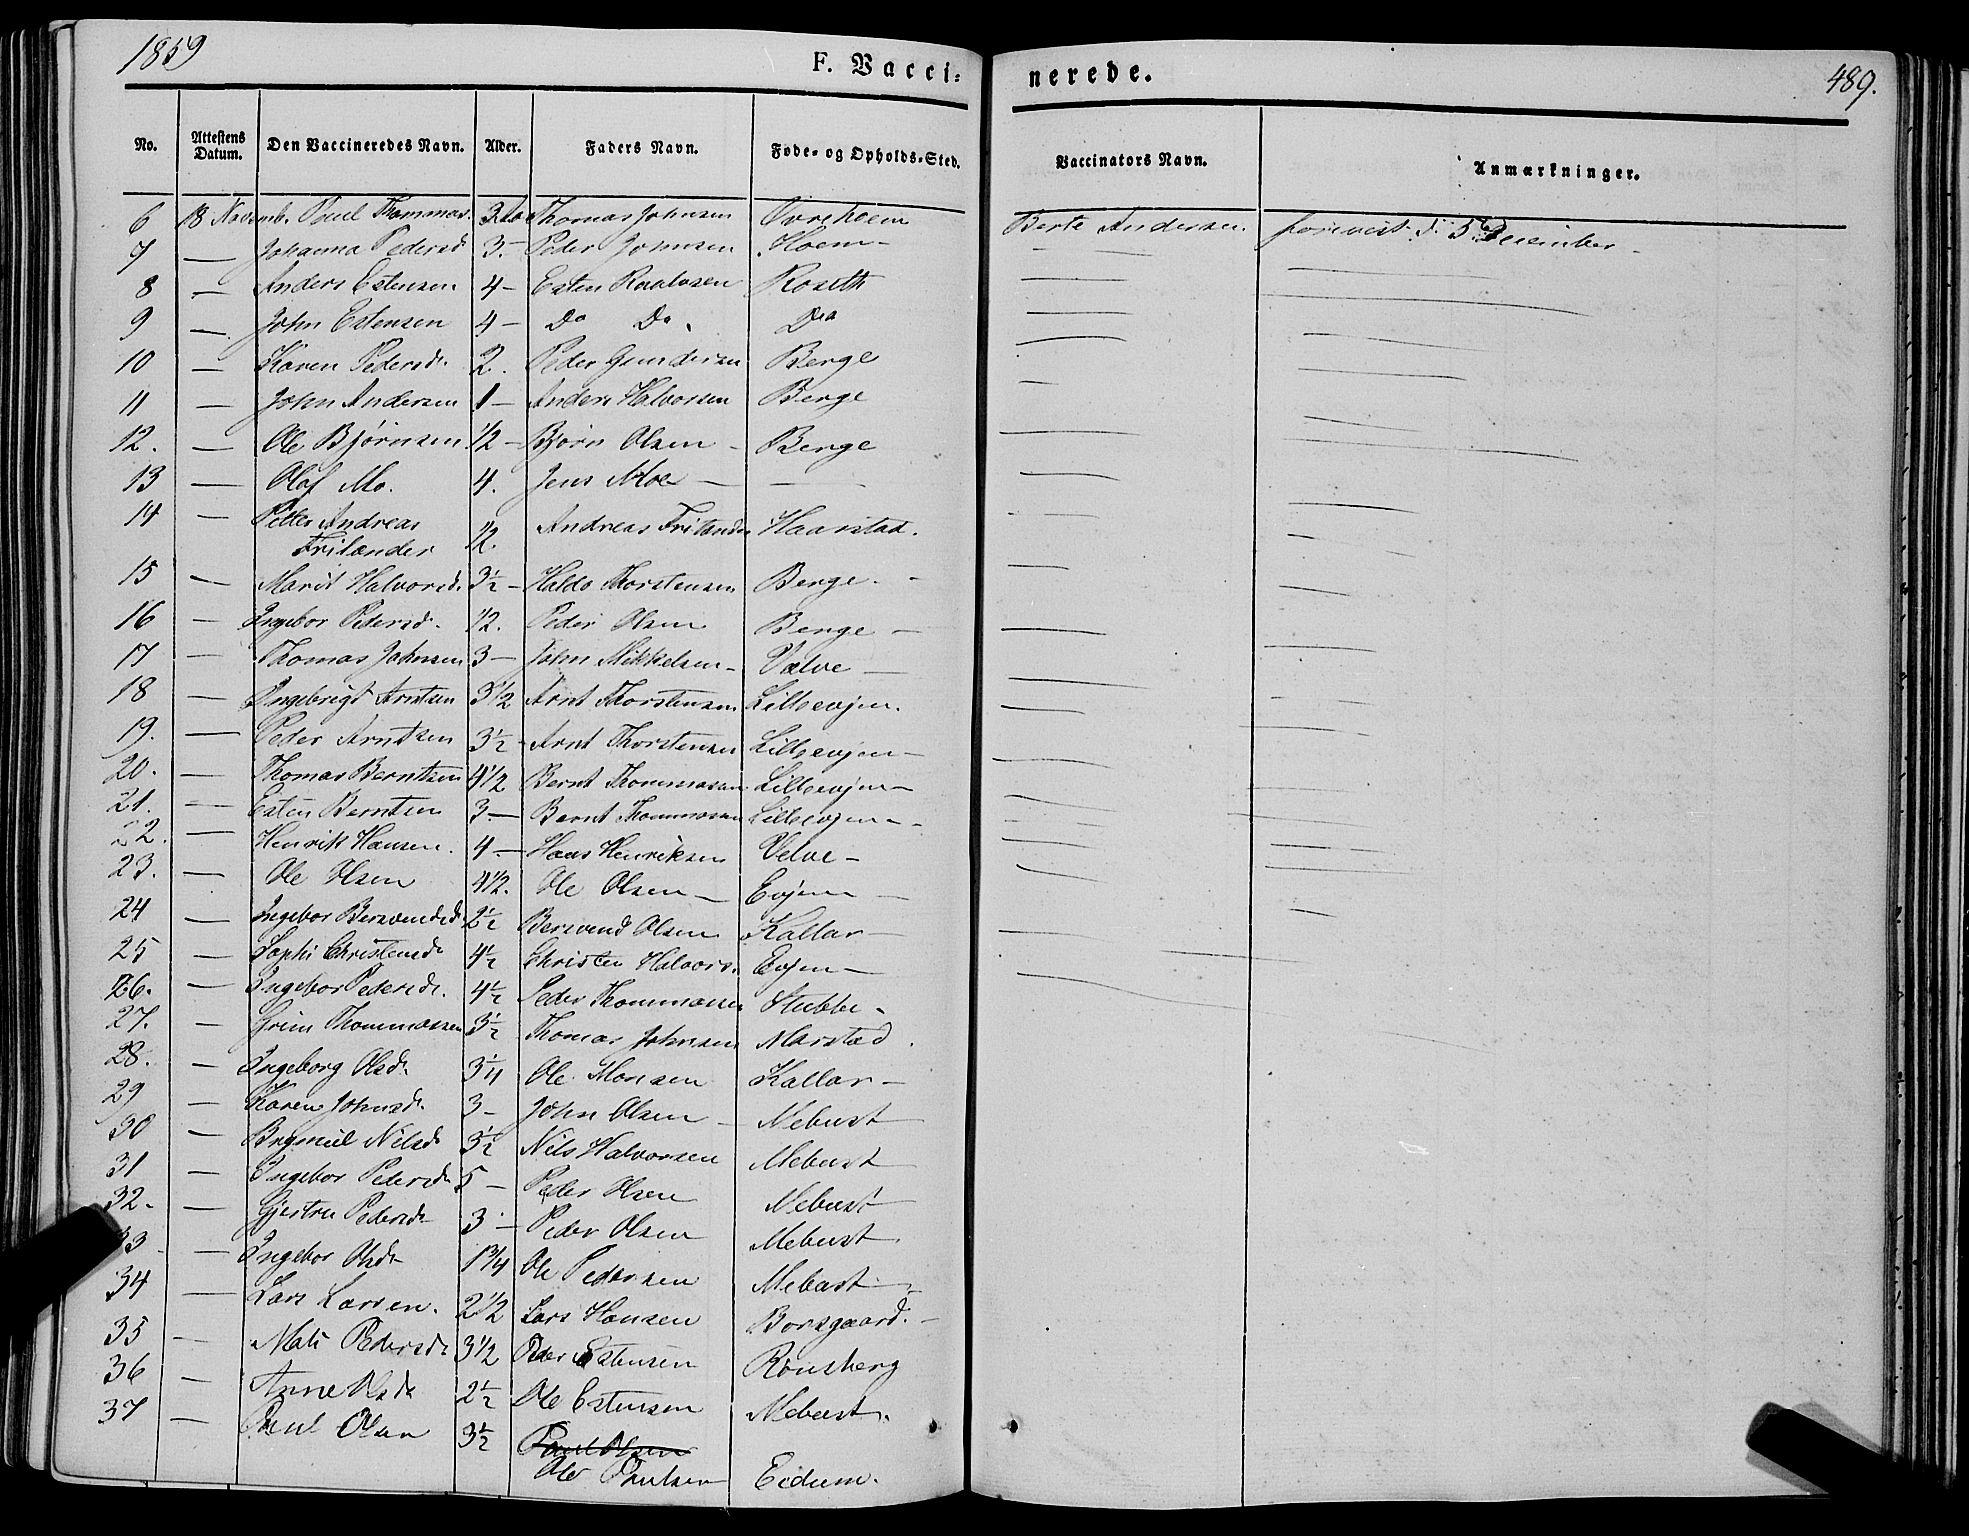 1859
F. Vacci-
nerede.
489.
No. Attestens Datum. Den Vaccineredes Navn. Alder. Faders Navn. Føde- og Opholds-Sted. Vaccinators Navn. Anmærkninger.
6 18 Novemb. Poul Thommas. 3 Thomas Johnsen Øvrehoem Berte Andersen. d. 5 December
7 — Johanna Pedersd 3.- Peder Johnsen Hoem-
8 — Anders Estensen. 4- Esten Roaldsen Roseth
9 — John Estensen 4- Do Do. Do
10 — Karen Pedersd. 2. Peder Gundersen Berge
11 — John Andersen 1- Anders Halvorsen Berge
12. — Ole Bjørnsen 1/2- Bjørn Olsen - Berge
13 — Olaf Mo. 4. Jens Moe — —
14 — Petter Andreas
Frilænder 1/2. Andreas Frilænder Haarstad.
15 — Marit Halvorsd. 3½- Haldo Thorstensen Berge.-
16 — Ingebor Pedersd. 1/2. Peder Olsen Berge —
17 — Thomas Johnsen 3- John Mikkelsen- Vælve —
18 — Ingebrigt Arntsen 3 1/2 Arnt Thorstensen Lilleevjen.
19. — Peder Arntsen 3½- Arnt Thorstensen Lilleevjen-
20. — Thomas Berntsen 4 1/2 Bernt Thommasen Lilleevjen-
21. — Esten Berntsen 3- Bernt Thommasen Lilleevjen-
22. — Henrik Hansen. 4.- Hans Henriksen Velve-
23. — Ole Olsen 4 1/2. Ole Olsen- Evjen —
24 — Ingebor Bersvendsd. 2½ Bersvend Olsen Kallar-
25 — Sophi Christensd. 4½ Christen Halvors. Evjen-
26. — Ingebor Pedersd. 4½ Peder Thommassen Stubbe-
27. — Grim Thommassen 3½ Thomas Johnsen Marstad.
28. — Ingeborg Olsd. 3¼ Ole Monsen Kallar-
29 — Karen Johnsd. 3- John Olsen - Mebust
30 — Brynnil Nilsd. 3½ Nils Halvorsen Mebust
31 — Ingebor Pedersd. 5- Peder Olsen Mebust
32. — Gjertru Pedersd- 3- Peder Olsen Mebust.
33 — Ingebor Olsd- 1 3/4 Ole Pedersen Mebust-
34 — Lars Larsen. 2 1/2 Lars Hansen Borsgaard.-
35 — Mali Pedersd. 3 1/2 Peder Estensen Rønsberg
36 — Anne Olsd. 2½ Ole Estensen Mebust.
37 — Paul Olsen 3½ Paul Olsen
Ole Paulsen Eidum.